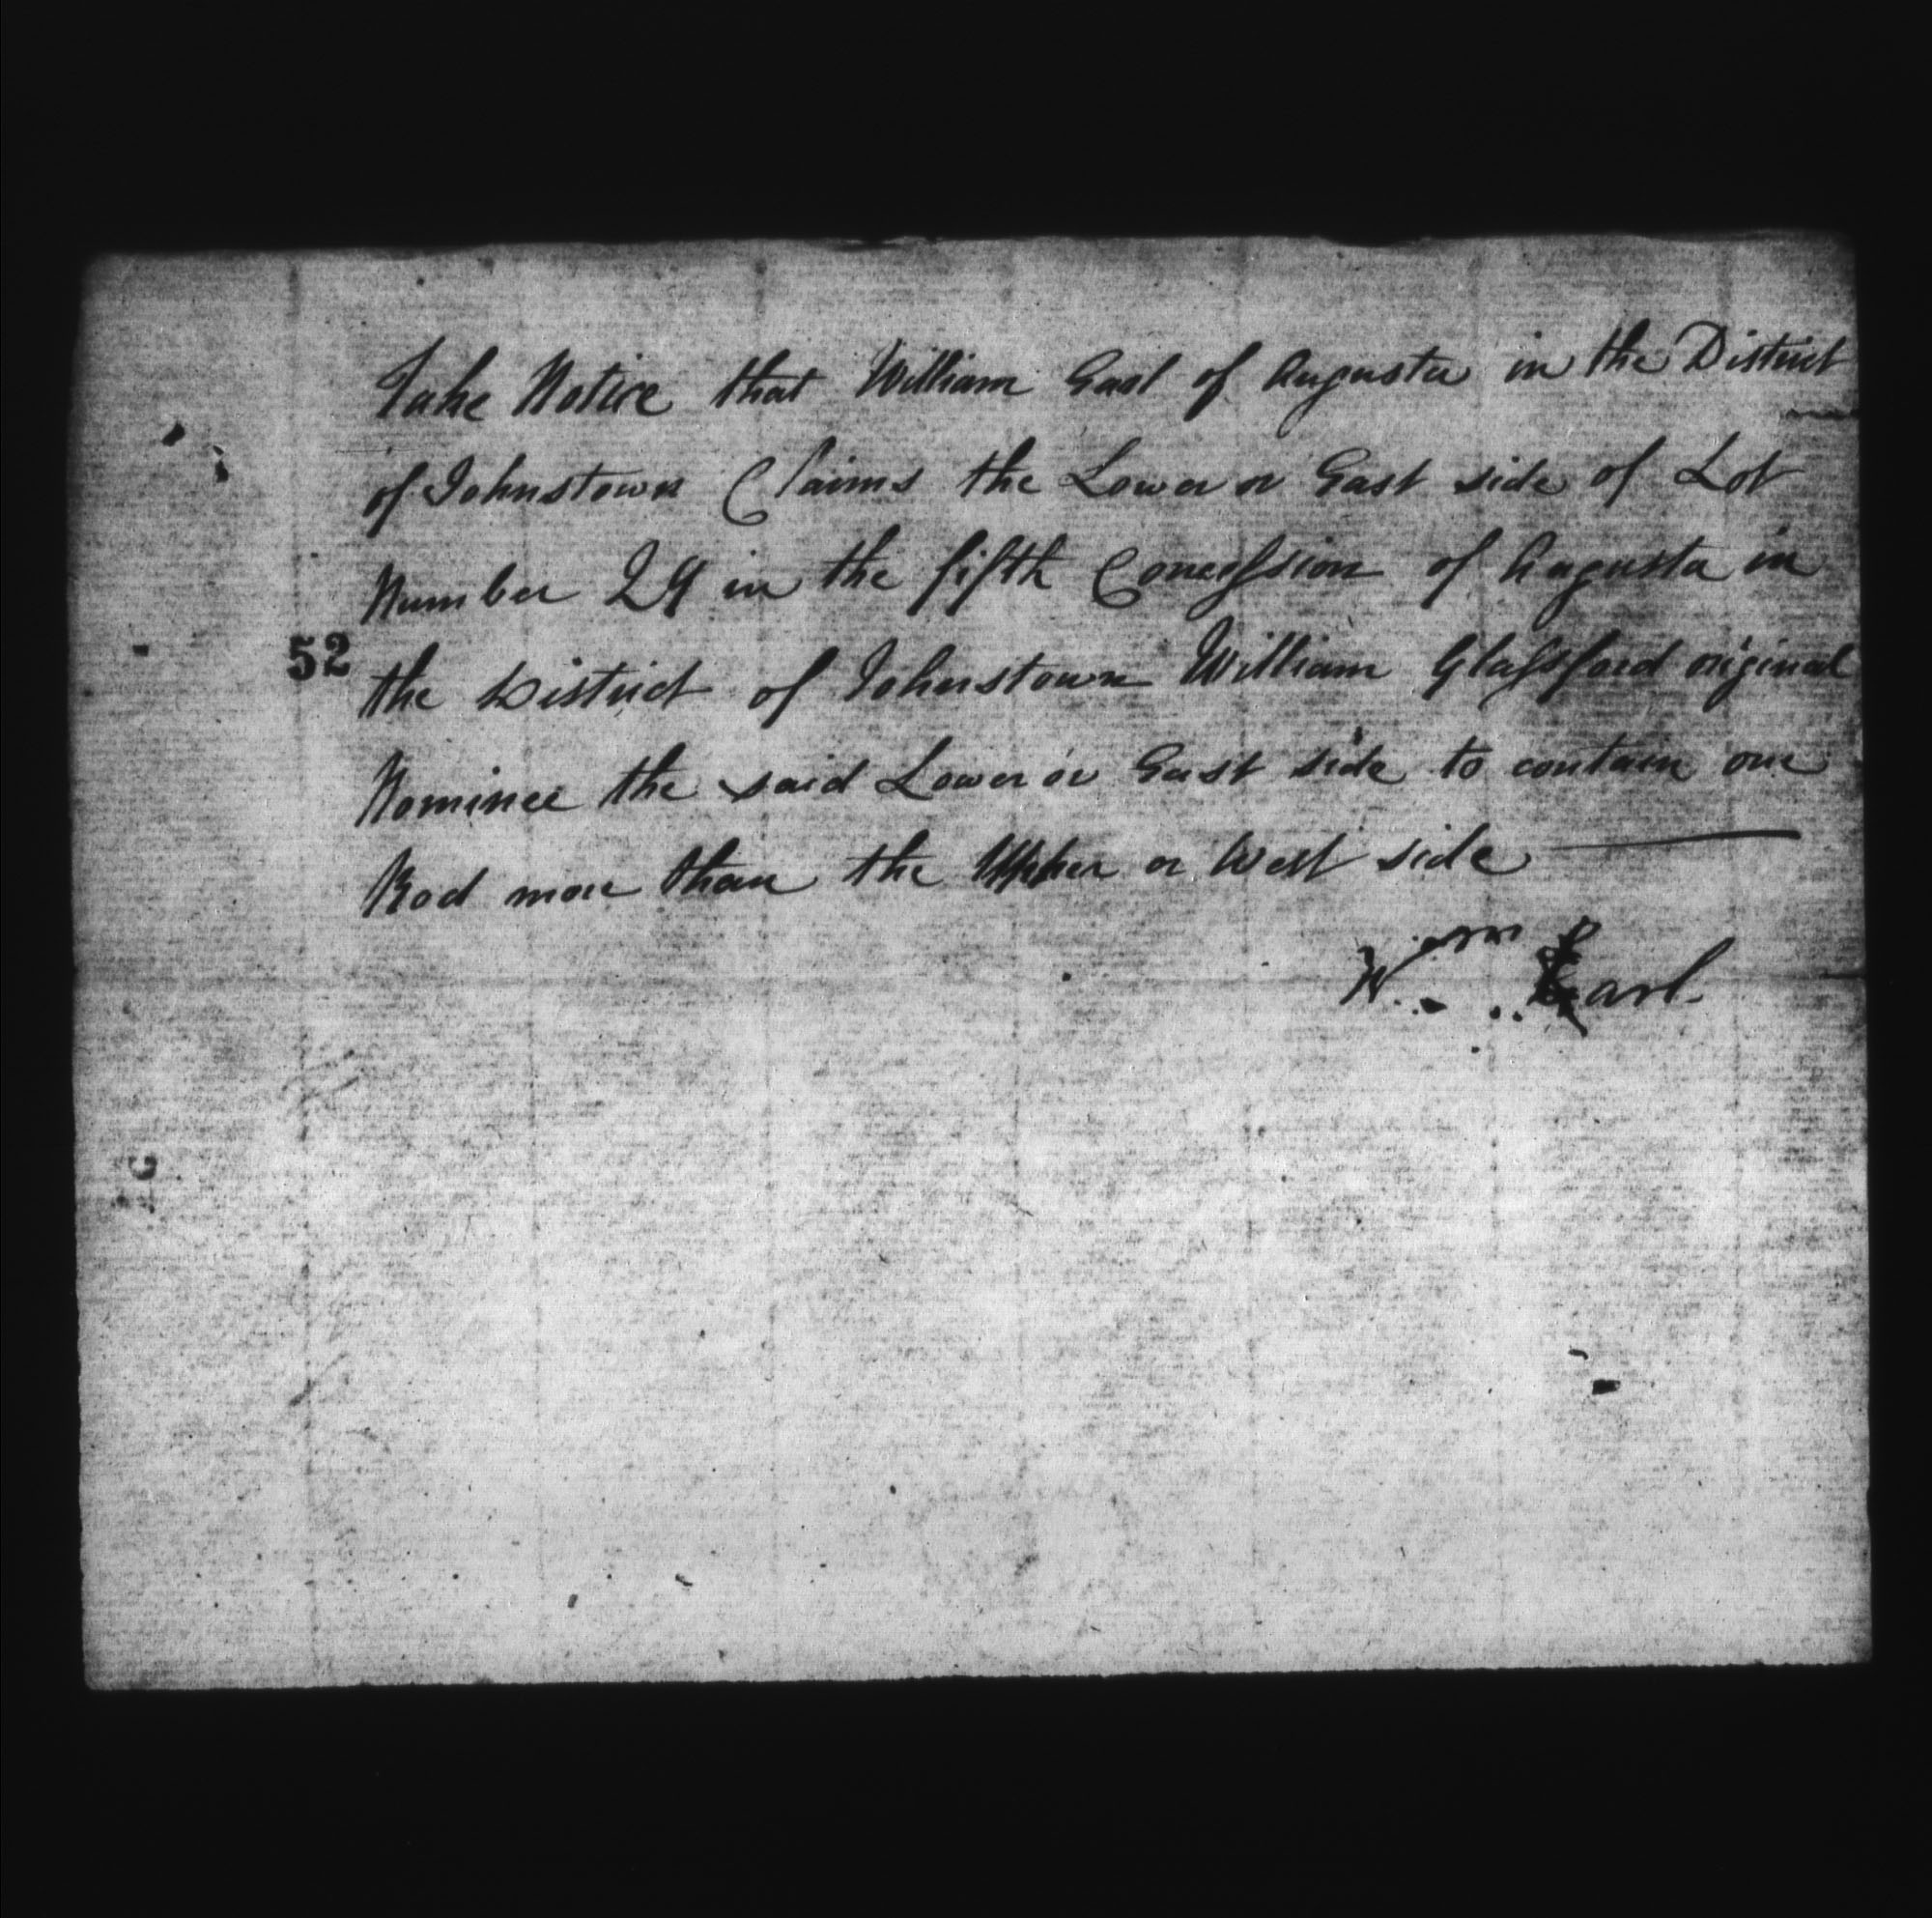 Take Notice that William Earl of Augusta in the District
of Johnstown Claims the Lower or East side of Lot
Number 29 in the fifth Concession of Augusta in
52
the District of Johnstown William Glassford original
Nominee the said Lower or East side to contain one
Rod more than the Upper or West side
Wm Earl.